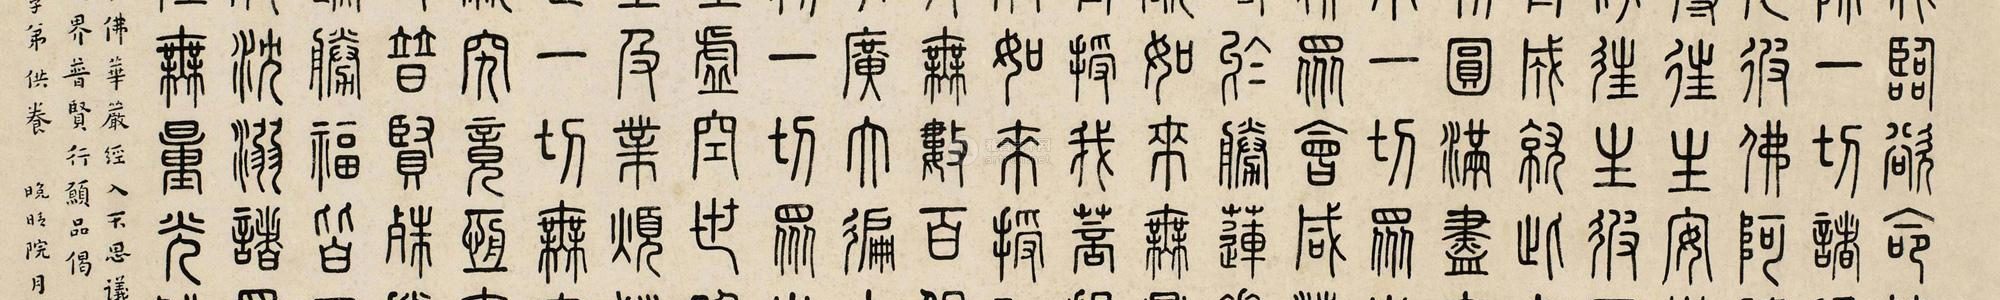 臨欲命
一切諸
彼佛阿
往生安
往生彼
成就此
圓滿盡
一切眾
眾會咸
於勝蓮
如來無
授我菩
如來授
無數百
廣大徧
一切眾
虛空世
及業煩
一切無
究竟恆
普賢殊
勝福皆
沈溺諸
無量光
佛華嚴經入不思議
界普賢行願品偈
弟供養 晚晴院月